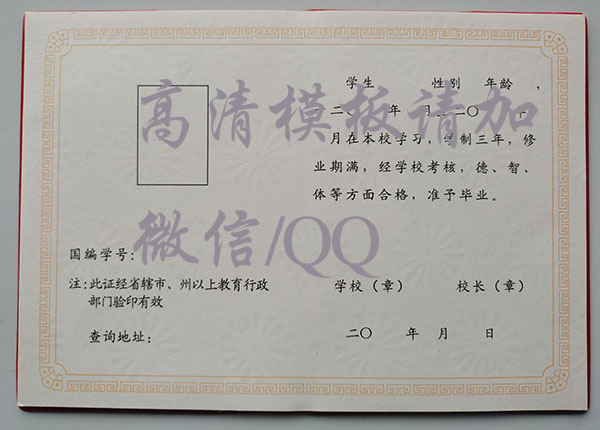 学生 性别 年龄，
一二〇 年 月至二〇 年
月在本校学习，学制三年，修
业期满，经学校考核，德、智、
体等方面合格，准予毕业。
高清模板请加
微信/QQ
国编学号：
注：此证经省辖市、州以上教育行政
部门验印有效
学校（章） 校长（章）
查询地址：
二〇 年 月 日